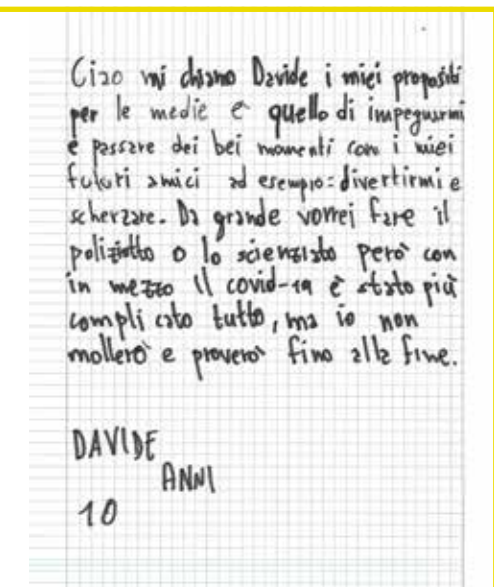 Ciao mi chiamo Davide i miei propositi
per le medie è quello di impegnarmi
e passare dei bei momenti con i miei
futuri amici ad esempio: divertirmi e
scherzare. Da grande vorrei fare il
poliziotto o lo scienziato però con
in mezzo il covid-19 è stato più
complicato tutto, ma io non
mollerò e proverò fino alla fine.
DAVIDE
ANNI
10